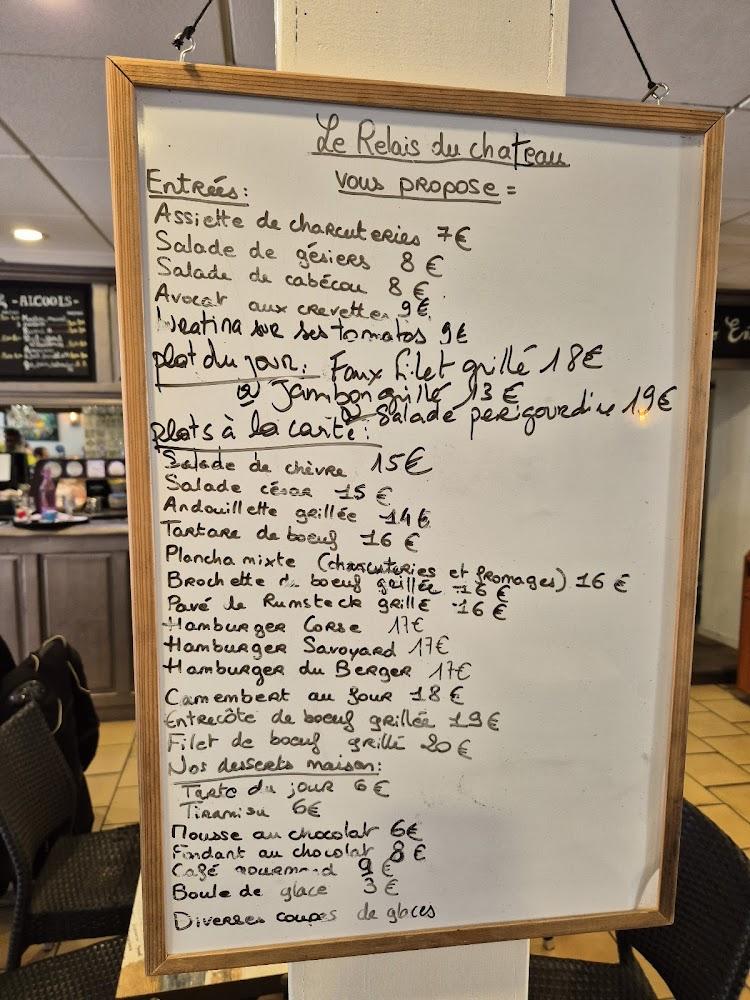 Le Relais du chateau
Vous propose =
Entrées:
Assiette de charcuteries 7€
Salade de gésiers 8 €
Salade de cabécou 8 €
Avocat aux crevettes 9€
sur ses tomates 9€
plat du jour: Faux filet grillé 18€
ou Jambon grillé 13 €
ou Salade perigourdine 19€
plats à la carte:
Salade de chèvre 15€
Salade césar 15 €
Andouillette grillée 14€
Tartare de boeuf 16 €
Plancha mixte (charcuteries et fromages) 16 €
Brochette de boeuf grillée 16 €
Pavé de Rumsteck grillé 16 €
Hamburger Corse 17€
Hamburger Savoyard 17€
Hamburger du Berger 17€
Camembert au four 18 €
Entrecôte de boeuf grillée 19€
Filet de boeuf grillé 20 €
Nos desserts maison:
Tarte du jour 6 €
Tiramisu 6€
Mousse au chocolat 6€
Fondant au chocolat 8 €
Café gourmand 9 €
Boule de glace 3 €
Diverses coupes de glaces
- ALCOOLS -